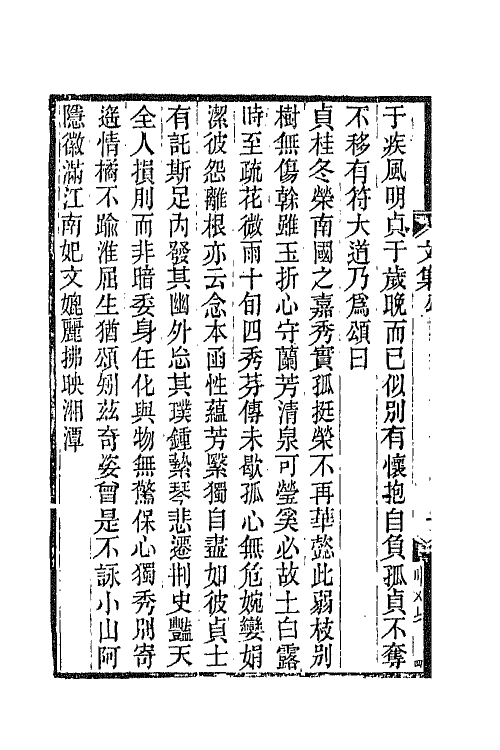 于疾風明貞于歲晚而已似別有懷抱自負孤貞不奪
不移有符大道乃爲頌曰
貞桂冬榮南國之嘉秀實孤挺榮不再華懿此弱枝別
樹無傷榦雖玉折心守蘭芳清泉可瑩奚必故土白露
時至疏花微雨十旬四秀芬傳未歇孤心無危婉孌娟
潔彼怨離根亦云念本函性蘊芳繄獨自盡如彼貞士
有託斯足內發其幽外忘其璞鍾縶琴悲遷荆史豔天
全人損則而非暗委身任化與物無驚保心獨秀別寄
逸情橘不踰淮屈生猶頌矧茲奇姿曾是不詠小山阿
隱徽滿江南妃文媲麗拂映湘潭
文集
四